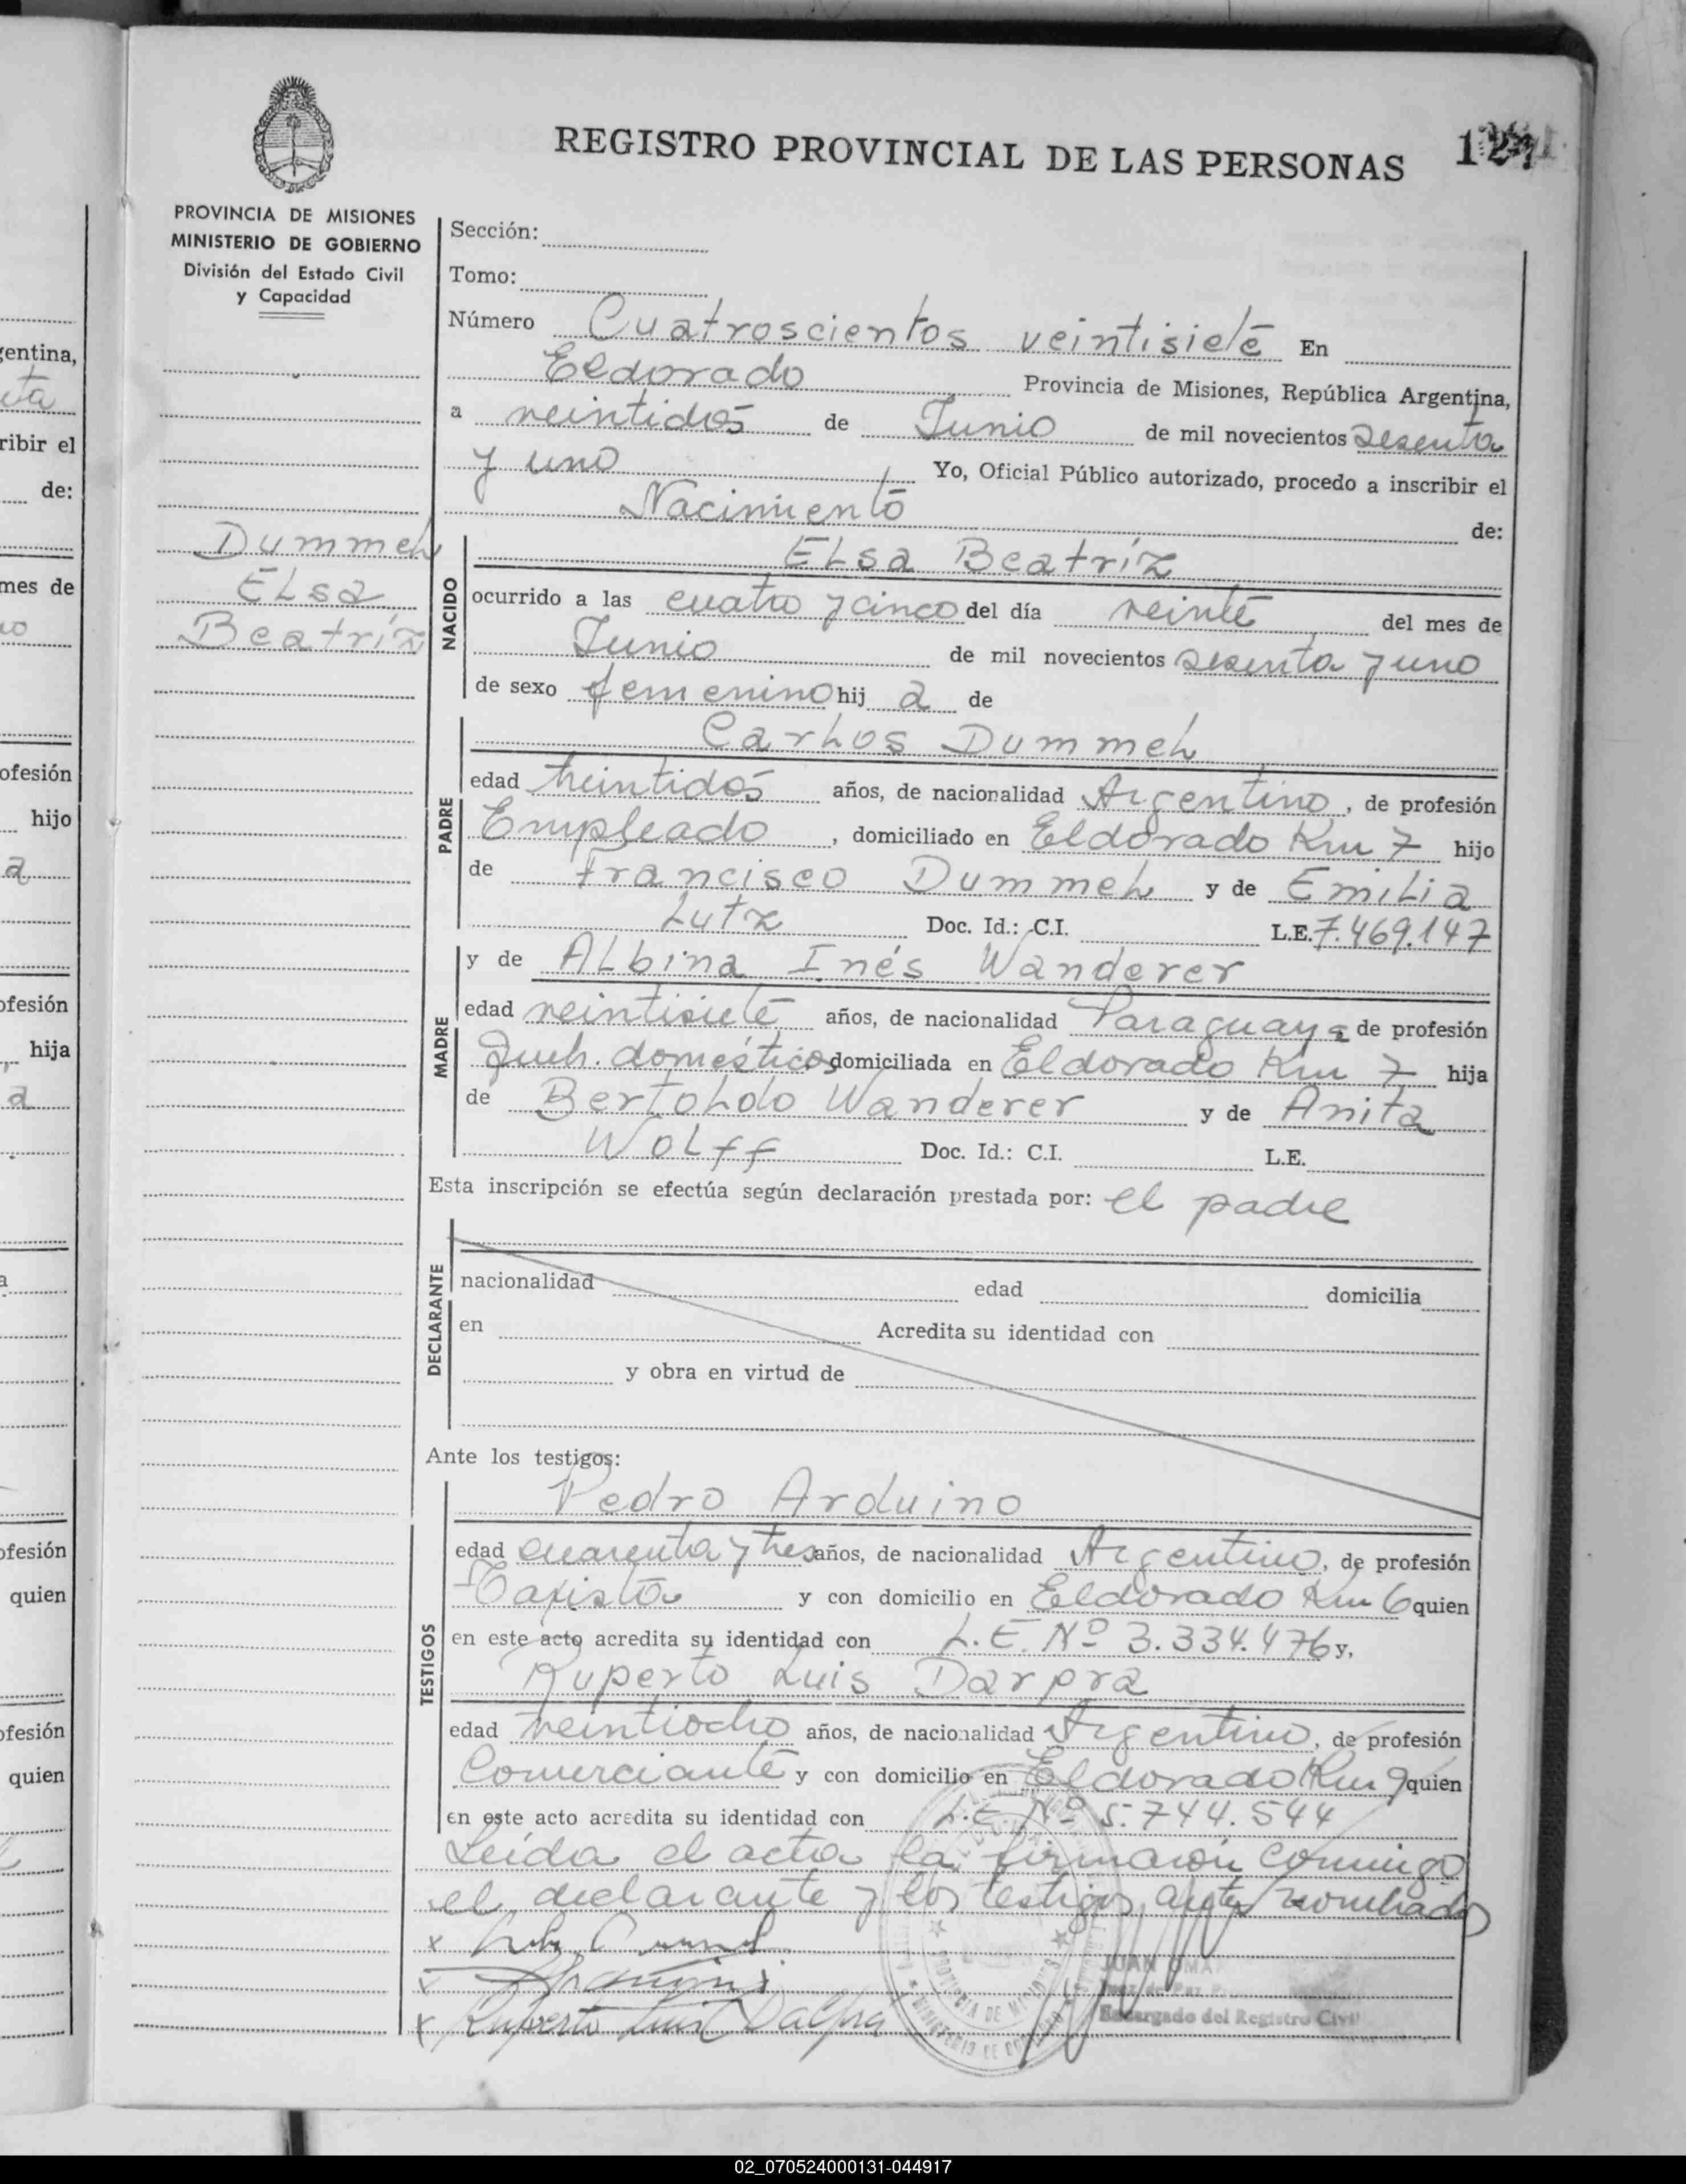 REGISTRO PROVINCIAL DE LAS PERSONAS
PROVINCIA DE MISIONES
MINISTERIO DE GOBIERNO
División del Estado Civil
y Capacidad
Sección:
Tomo:
Número Cuatroscientos veintisiete En
Eldorado Provincia de Misiones, República Argentina,
a veintidos de Junio de mil novecientos sesenta
y uno Yo, Oficial Público autorizado, procedo a inscribir el
Nacimiento de:
Dummel
Elsa
Beatríz
NACIDO
Elsa Beatríz
ocurrido a las cuatro y cinco del día veinte del mes de
Junio de mil novecientos sesenta y uno
de sexo femenino hij a de
PADRE
Carlos Dummel
edad veintidos años, de nacionalidad Argentino, de profesión
Empleado, domiciliado en Eldorado Km 7 hijo
de Francisco Dummel y de Emilia
Lutz Doc. Id.: C.I. L.E. 7.469.147
MADRE
y de Albina Inés Wanderer
edad veintisiete años, de nacionalidad Paraguaya de profesión
domésticos domiciliada en Eldorado Km 7 hija
de Bertoldo Wanderer y de Anita
Wolff Doc. Id.: C.I. L.E.
Esta inscripción se efectúa según declaración prestada por: el padre
DECLARANTE
nacionalidad edad domicilia
en Acredita su identidad con
y obra en virtud de
Ante los testigos:
TESTIGOS
Pedro Arduino
edad cuarenta y tres años, de nacionalidad Argentino, de profesión
Taxista y con domicilio en Eldorado Km 6 quien
en este acto acredita su identidad con L.E. Nº 3.334.476 y,
Ruperto Luis Darpra
edad veintiocho años, de nacionalidad Argentino, de profesión
Comerciante y con domicilio en Eldorado Km 9 quien
en este acto acredita su identidad con L.E. Nº 5.744.544
Leída el acta la firmaron conmigo
el declarante y los testigos antes nombrados
x
x
x Ruperto Luis Dalpra
JUAN
Encargado del Registro Civil
PROVINCIA DE MISIONES
MINISTERIO DE GOBIERNO
entina,
ribir el
de:
mes de
ofesión
hijo
a
ofesión
hija
a
ofesión
quien
ofesión
quien
02_070524000131-044917